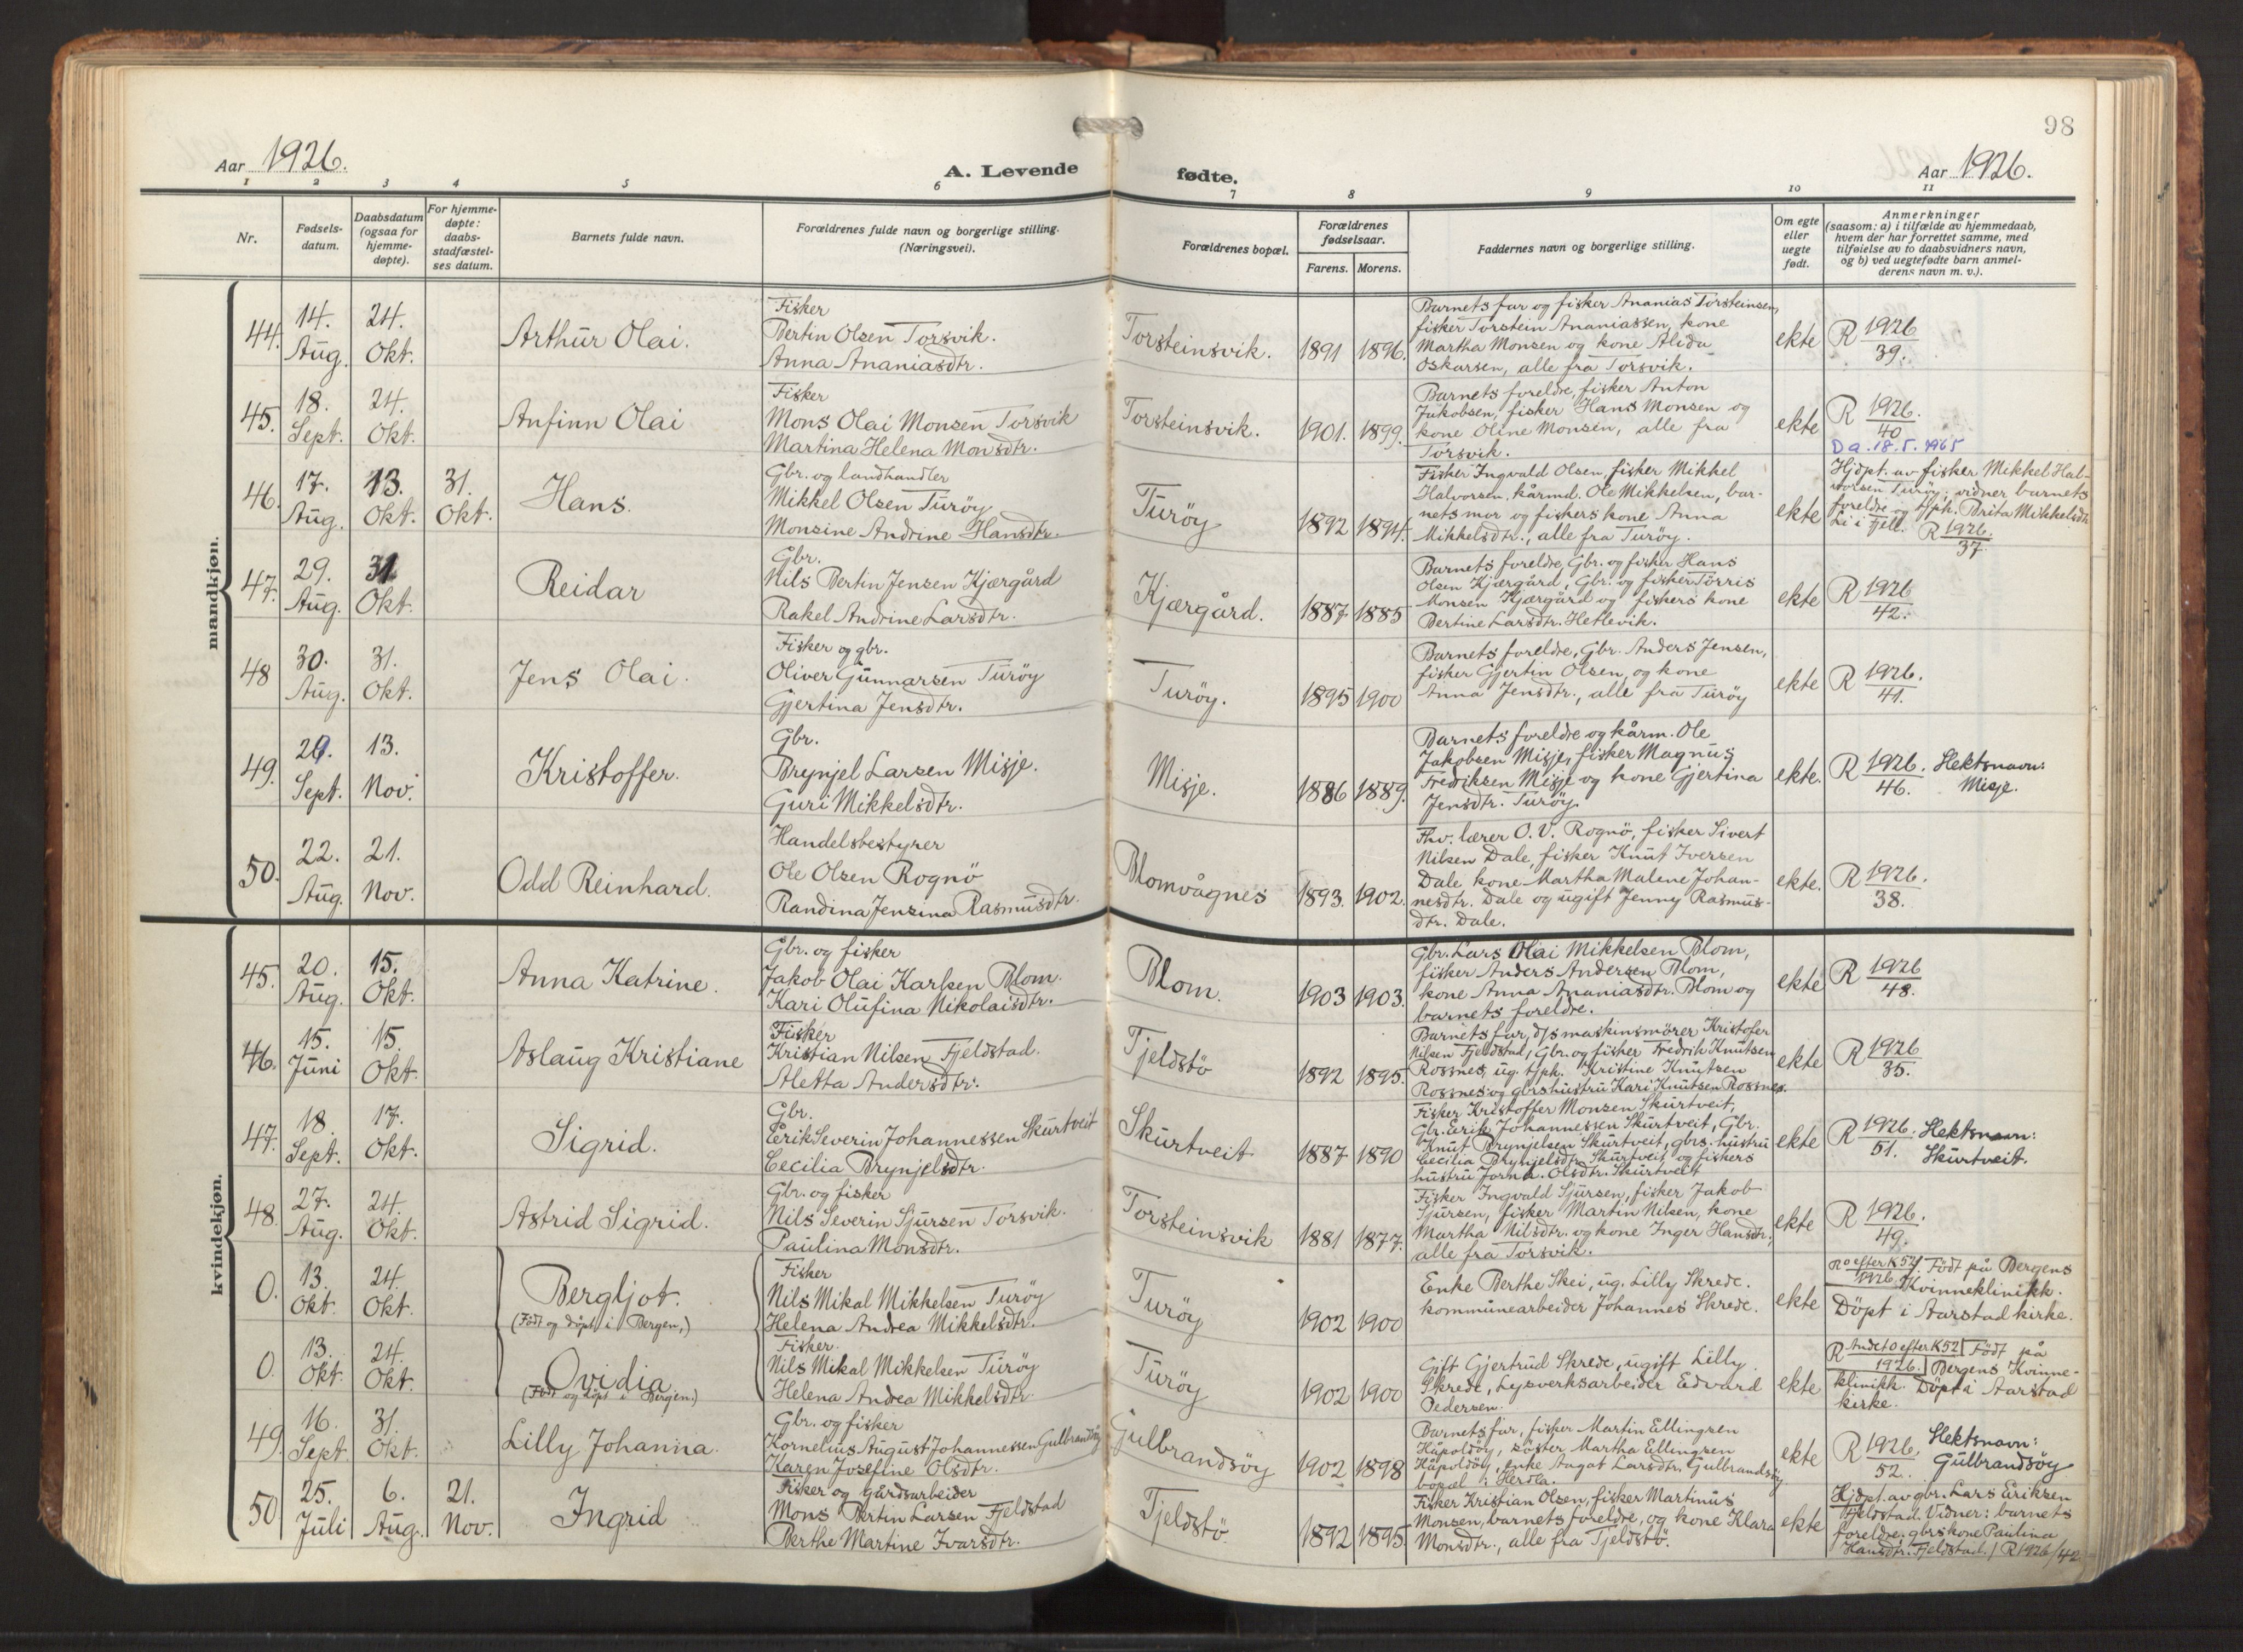 98
Aar 1926.
A. Levende
fødte.
Aar 1926.
1 2 3 4 5 6 7 8 9 10 11
Nr.
Fødsels-
datum.
Daabsdatum
(ogsaa for
hjemme-
døpte).
For hjemme-
døpte:
daabs-
stadfæstel-
ses datum.
Barnets fulde navn.
Forældrenes fulde navn og borgerlige stilling.
(Næringsvei).
Forældrenes bopæl.
Forældrenes
fødselsaar.
Farens. Morens.
Faddernes navn og borgerlige stilling.
Om egte
eller
uegte
født.
Anmerkninger
(saasom: a) i tilfælde av hjemmedaab,
hvem der har forrettet samme, med
tilføielse av to daabsvidners navn,
og b) ved uegtefødte barn anmel-
derens navn m. v.).
mandkjøn.
44.
14.
Aug.
24.
Okt.
Arthur Olai.
Fisker
Bertin Olsen Torsvik.
Anna Ananiasdtr.
Torsteinsvik.
1891 1896.
Barnets far og fisker Ananias Torsteinsen,
fisker Torstein Ananiassen, kone
Martha Monsen og kone Alida
Oskarsen, alle fra Torsvik.
ekte
R 1926
39.
45.
18.
Sept.
24.
Okt.
Anfinn Olai
Fisker
Mons Olai Monsen Torsvik
Martina Helena Monsdtr.
Torsteinsvik.
1901. 1899.
Barnets foreldre, fisker Anton
Jakobsen, fisker Hans Monsen og
kone Oline Monsen, alle fra
Torsvik.
ekte
R 1926.
40
Da. 18.5.1965
46.
17.
Aug.
13.
Okt.
31.
Okt.
Hans.
Gbr. og landhandler
Mikkel Olsen Turöy
Monsine Andrine Hansdtr.
Turöy
1892 1894.
Fisker Ingvald Olsen, fisker Mikkel
Halvorsen, kårmd. Ole Mikkelsen, bar-
nets mor og fiskers kone Anna
Mikkelsdtr., alle fra Turöy.
ekte
Hjdpt. av fisker Mikkel Hal-
vorsen Turöy; vidner barnets
foreldre og tjph. Brita Mikkelsdtr.
Li i Fjell. R 1926.
37.
47.
29.
Aug.
31
Okt.
Reidar
Gbr.
Nils Bertin Jensen Kjærgård
Rakel Andrine Larsdtr.
Kjærgård.
1887 1885
Barnets foreldre, Gbr. og fisker Hans
Olsen Kjærgård, Gbr. og fisker Torris
Monsen Kjærgård og fiskers kone
Bertine Larsdtr. Hetlevik.
ekte
R 1926
42.
48
30.
Aug.
31.
Okt.
Jens Olai.
Fisker og gbr.
Oliver Gunnarsen Turöy
Gjertina Jensdtr.
Turöy.
1895 1900
Barnets foreldre, Gbr. Anders Jensen,
fisker Gjertin Olsen, og kone
Anna Jensdtr., alle fra Turöy
ekte
R 1926.
41.
49.
29.
Sept.
13.
Nov.
Kristoffer.
Gbr.
Brynjel Larsen Misje.
Guri Mikkelsdtr.
Misje.
1886 1889.
Barnets foreldre og kårm. Ole
Jakobsen Misje, fisker Magnus
Fredriksen Misje og kone Gjertina
Jensdtr. Turöy
ekte.
R 1926.
46.
Slektsnavn:
Misje.
50.
22.
Aug.
21.
Nov.
Odd Reinhard.
Handelsbestyrer
Ole Olsen Rognö
Randina Jensina Rasmusdtr.
Blomvågnes
1893. 1902.
Fhv. lærer O. V. Rognö, fisker Sivert
Nilsen Dale, fisker Knut Iversen
Dale, kone Martha Malene Johan-
nesdtr. Dale og ugift Jenny Rasmus-
dtr. Dale.
ekte.
R 1926.
38.
kvindekjøn.
45.
20.
Aug.
15.
Okt.
Anna Katrine.
Gbr. og fisker
Jakob Olai Karlsen Blom.
Kari Olufina Nikolaisdtr.
Blom.
1903 1903.
Gbr. Lars Olai Mikkelsen Blom,
fisker Anders Andersen Blom,
kone Anna Ananiasdtr. Blom og
barnets foreldre.
ekte
R 1926
48.
46.
15.
Juni
15.
Okt.
Aslaug Kristiane
Fisker
Kristian Nilsen Fjeldstad.
Aletta Andersdtr.
Tjeldstö
1892 1895.
Barnets far, d/s maskinsmörer Kristofer
Nilsen Fjeldstad, Gbr. og fisker Fredrik Knutsen
Rossnes, ug. tjph. Kristine Knutsen
Rossnes og gbrshustru Kari Knutsen Rossnes.
ekte
R 1926
35.
47.
18.
Sept.
17.
Okt.
Sigrid.
Gbr.
Erik Severin Johannessen Skurtveit
Cecilia Brynjelsdtr.
Skurtveit
1887 1890
Fisker Kristoffer Monsen Skurtveit,
Gbr. Erik Johannessen Skurtveit, Gbr.
Knut Brynjelsen Skurtveit, gbrs. hustru
Cecilia Brynjelsdtr. Skurtveit og fiskers
hustru Olsdtr. Skurtveit
ekte
R 1926.
51.
Slektsnavn:
Skurtveit.
48.
27.
Aug.
24.
Okt.
Astrid Sigrid.
Gbr. og fisker
Nils Severin Sjursen Torsvik.
Paulina Monsdtr.
Torsteinsvik
1881 1877.
Fisker Ingvald Sjursen, fisker Jakob
Sjursen, fisker Martin Nilsen, kone
Martha Nilsdtr. og kone Inger Hansdtr.,
alle fra Torsvik.
ekte
R 1926.
49.
0.
13.
Okt.
24.
Okt.
Bergljot.
(Födt og döpt i Bergen.)
Fisker
Nils Mikal Mikkelsen Turöy
Helena Andrea Mikkelsdtr.
Turöy
1902 1900
Enke Berthe Skei, ug. Lilly Skrede.
kommunearbeider Johannes Skrede.
ekte
R 0 efter K 52
1926. Födt på Bergens
Kvinneklinikk.
Döpt i Aarstad kirke.
0.
13.
Okt.
24.
Okt.
Ovidia
(Födt og döpt i Bergen.)
Fisker.
Nils Mikal Mikkelsen Turöy
Helena Andrea Mikkelsdtr.
Turöy
1902 1900
Gift Gjertrud Skrede, ugift Lilly
Skrede, Lysverksarbeider Edvard
Pedersen.
ekte
R Andet 0 efter K 52
1926. Födt på
Bergens Kvinne-
klinikk. Döpt i Aarstad
kirke.
49.
16.
Sept.
31.
Okt.
Lilly Johanna.
Gbr. og fisker
Kornelius August Johannessen Gulbrandsöy
Karen Josefine Olsdtr.
Gulbrandsöy
1902 1898
Barnets far, fisker Martin Ellingsen
Håpoldöy, söster Martha Ellingsen
Håpoldöy, enke Larsdtr. Gulbrandsöy
bopæl i Herdla.
ekte
R 1926.
52.
Slektsnavn:
Gulbrandsöy
50
25.
Juli
6.
Aug.
21.
Nov.
Ingrid
Fisker og Gårdsarbeider
Mons Bertin Larsen Fjeldstad
Berthe Martine Ivarsdtr.
Tjeldstö.
1892 1895
Fisker Kristian Olsen, fisker Martinus
Monsen, barnets foreldre, og kone Klara
Monsdtr., alle fra Tjeldstö.
ekte
Hjdpt. av gbr. Lars Eriksen
Fjeldstad. Vidner: barnets
foreldre. gbrs kone Paulina
Hansdtr. Fjeldstad. / R 1926/42